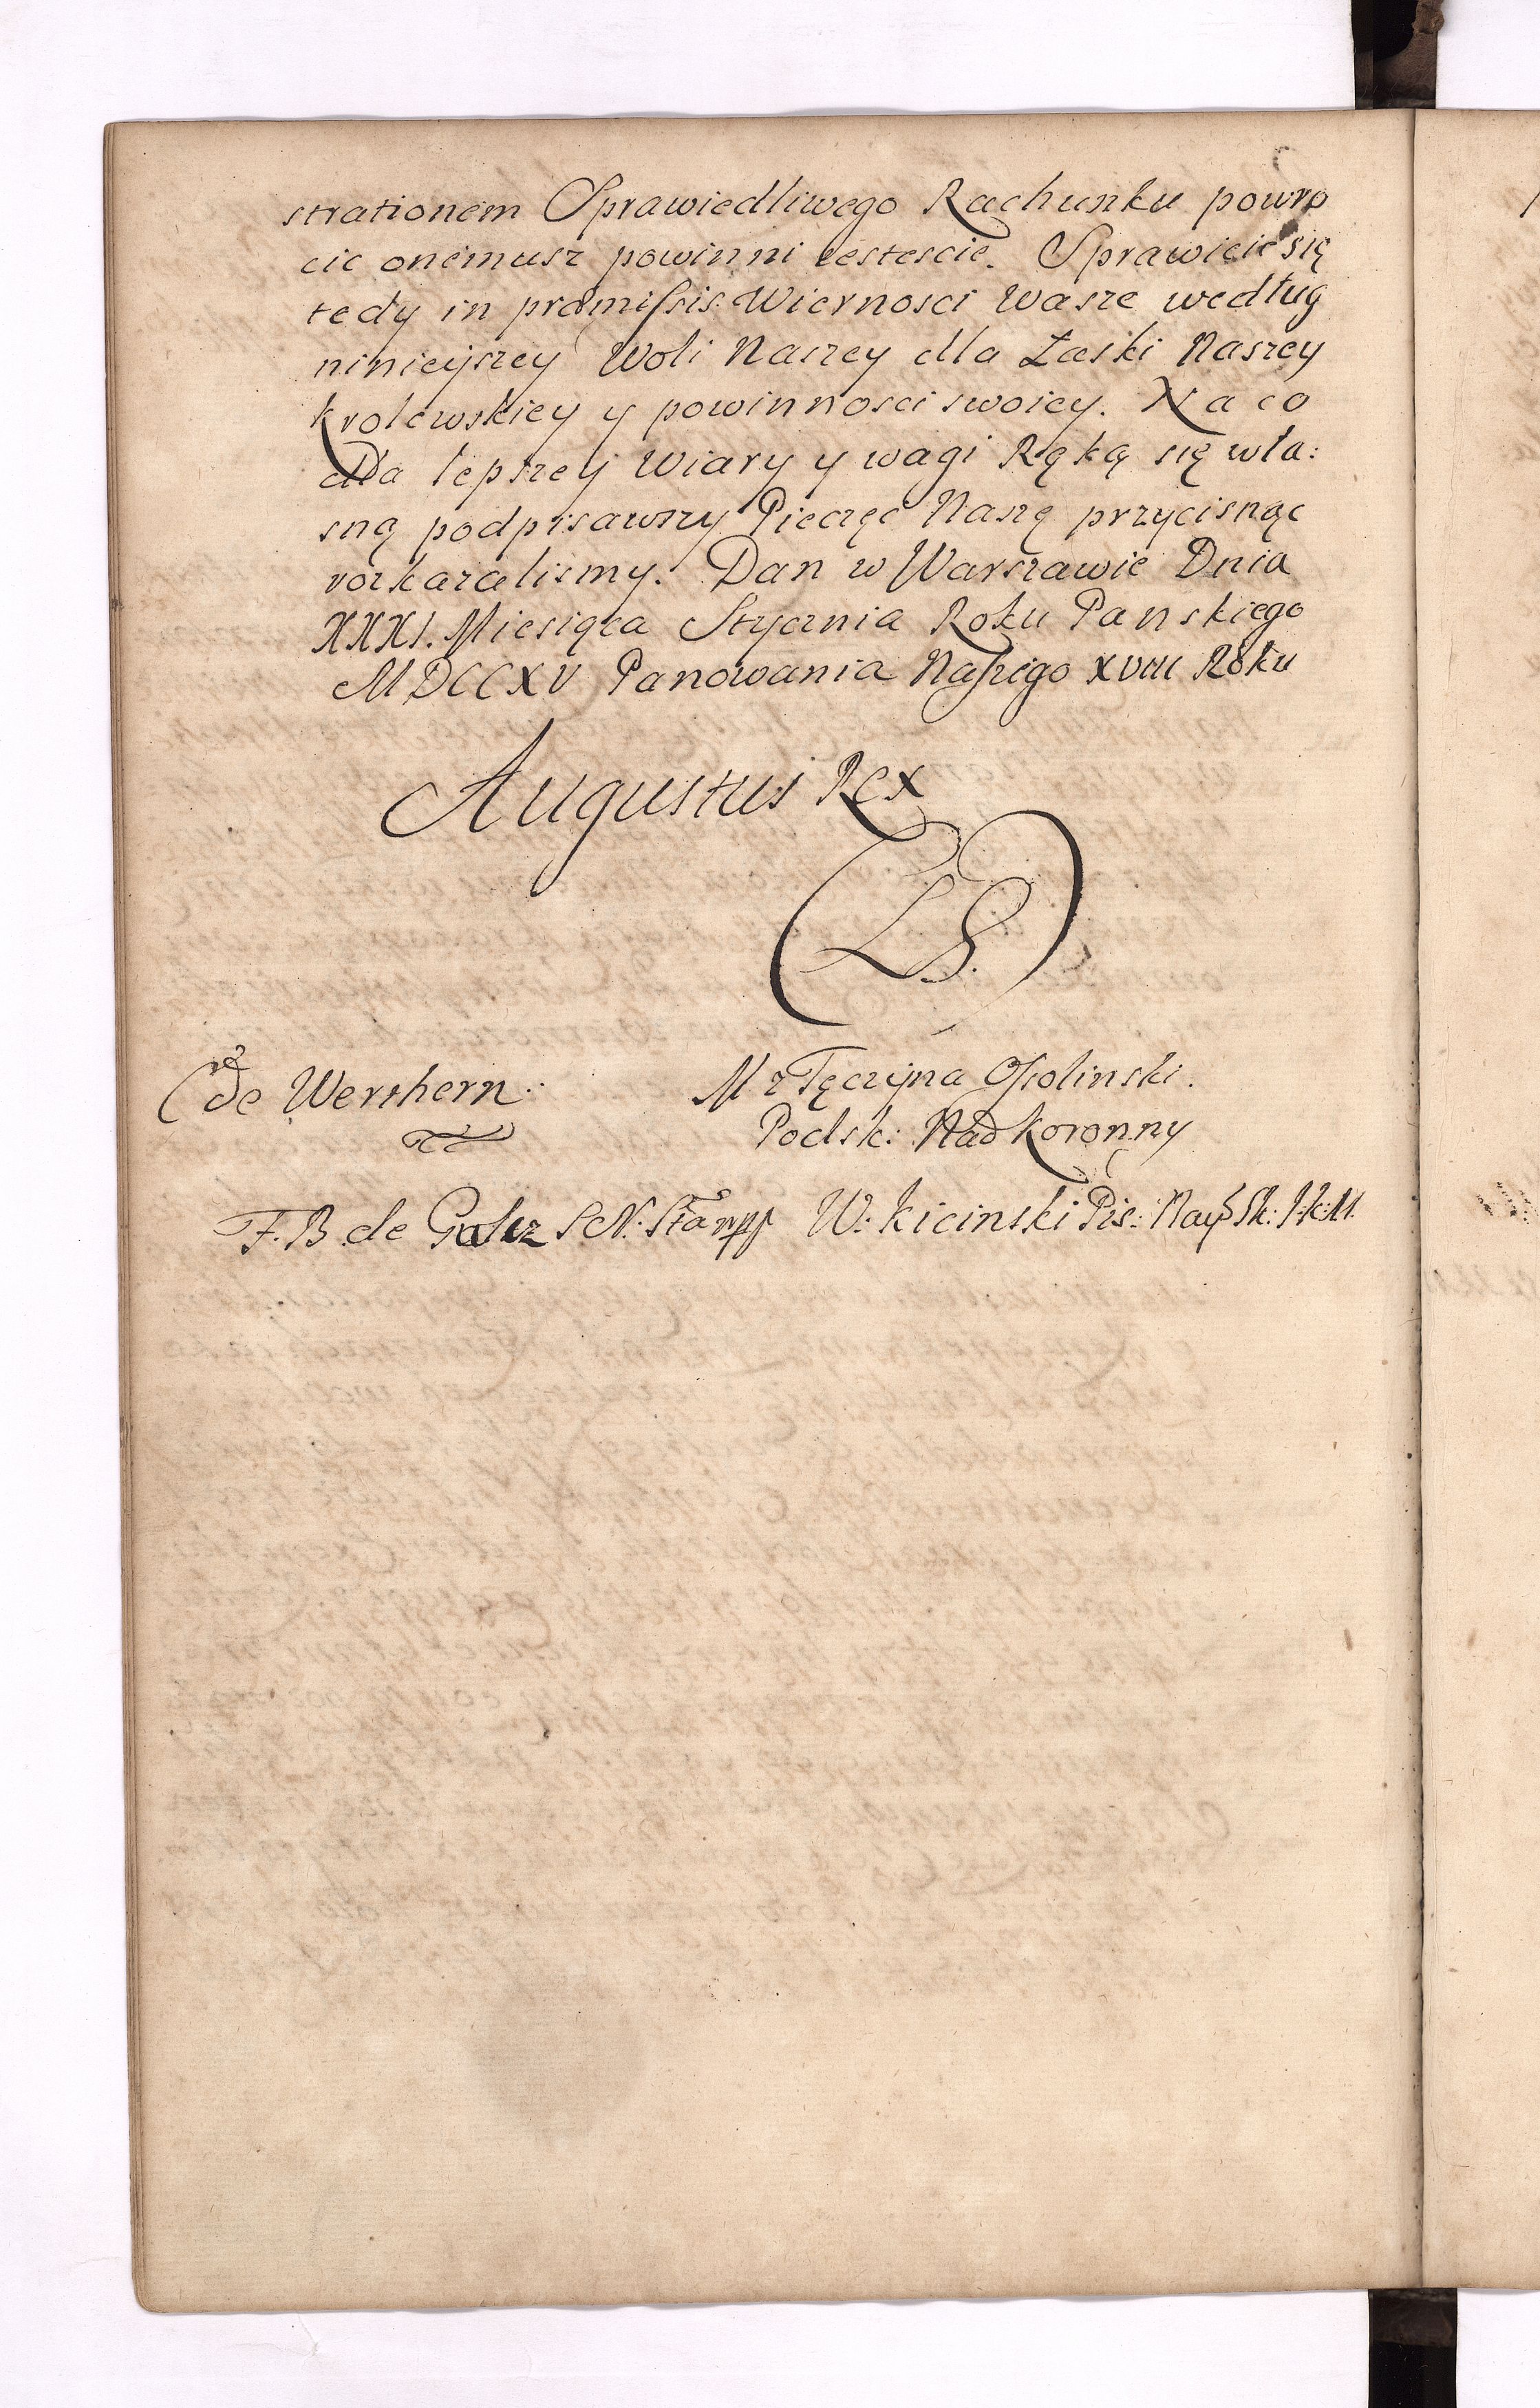 strationem Sprawiedliwego Rachunku powro
cic onemusz powinni iestescie. Sprawicie się
tedy in præmissis Wiernosci Wasze według
ninieyszey Woli Naszey dla Łaski Naszey
krolewskiey y powinnosci swoiey. Na co
dla lepszey wiary y wagi Ręką się wła:
sną podpisawszy Pieczęc Naszę przycisnąc
rozkazalismy. Dan w Warszawie Dnia
XXXI. Miesiąca Stycznia Roku Panskiego
MDCCXV Panowania Naszego XVIII Roku
Augustus Rex
(LS.)
de Werthern
M z Tęczyna Ossolinski.
Podsk: Nad Koronny
F. B de Goltz
W: Kicinski Pis: Nay Sk: J.K.M.